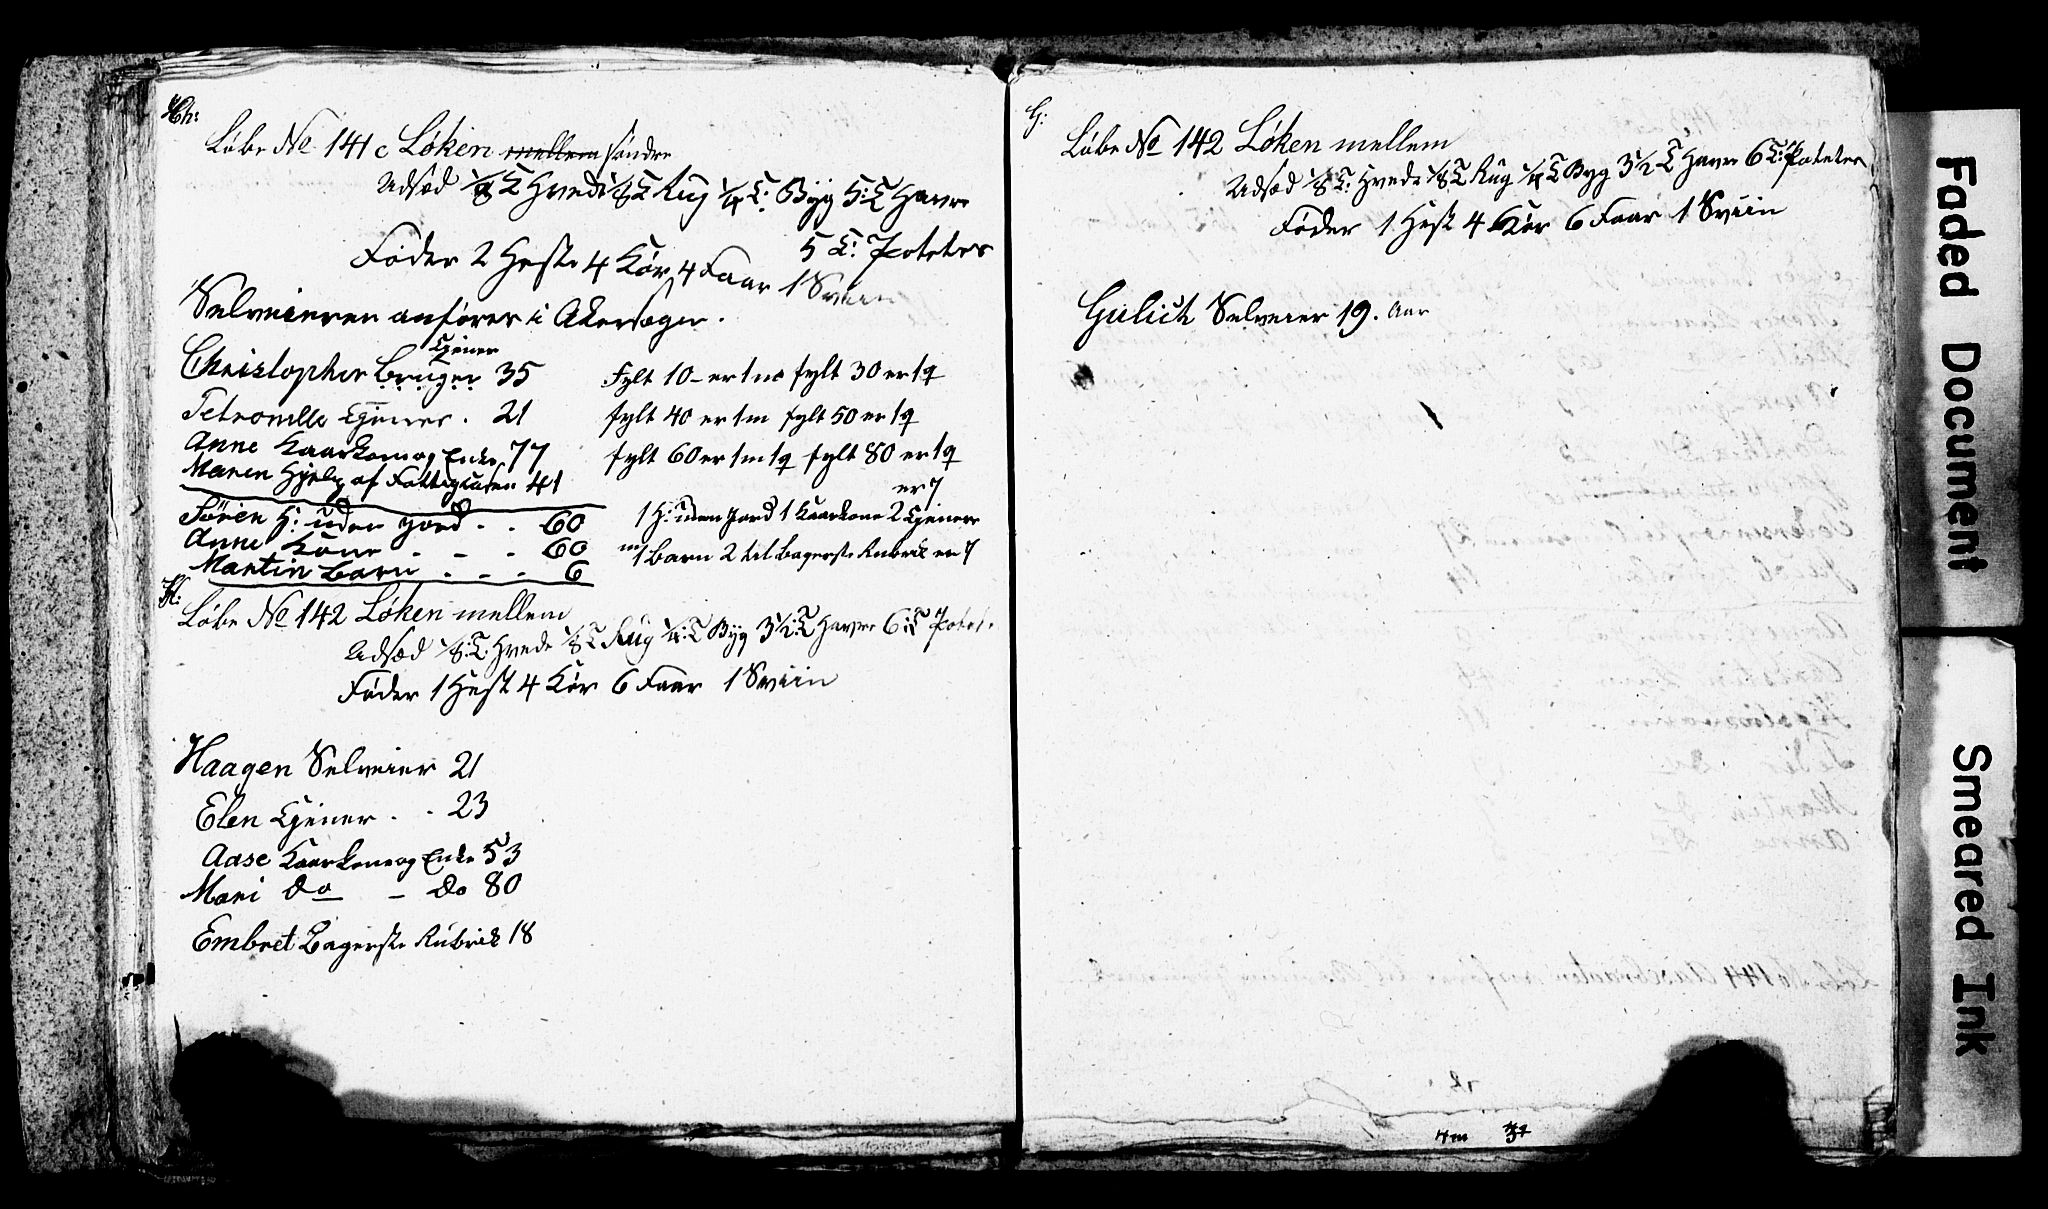 Ch:
Løbe No 141 c Løken mellem søndre
Udsæd 1/8 T Hvede 1/8 T Rug 1/4 T: Byg 5: T Havre
5 T: Poteter
Føder 2 Heste 4 Kør, 4 Faar 1 Sviin
Selveieren anføres i Akersager.
Tjener
Christopher Bruger 35
Petronelle Tjener . 21
Anne Kaarkone og Enke 77
Maren Hjelp af Fattigcassen 41
Fylt 10 - er 1 m fylt 30 er 1 q
fylt 40 er 1 m fylt 50 er 1 q
fylt 60 er 1 m 1 q fylt 80 er 1 q
er 7
Søren H: uden Jord . . 60
Anne Kone . - - 60
Martin Barn . - - 6
1 H: uden Jord 1 Kaarkone 2 Tjenere
1 Barn 2 til bagerste Rubrik er 7
H:
Løbe No 142 Løken mellem
Udsæd 1/8 T: Hvede 1/8 T Rug 1/4: T Byg 3 1/2: T Havre 6: T Potet.
Føder 1 Hest 4 Kør 6 Faar 1 Sviin
Haagen Selveier 21
Elen Tjener . . 23
Aase Kaarkone og Enke 53
Mari Do - Do 80
Embret Bagerste Rubrik 18
G:
Løbe No 142 Løken mellem
Udsæd 1/8 T: Hvede 1/8 T Rug 1/4 T Byg 3 1/2 T Havre 6 T: Poteter
Føder 1 Hest 4 Kør 6 Faar 1 Sviin
Gulich Selveier 19. Aar
4 m
Faded Document
Smeared Ink